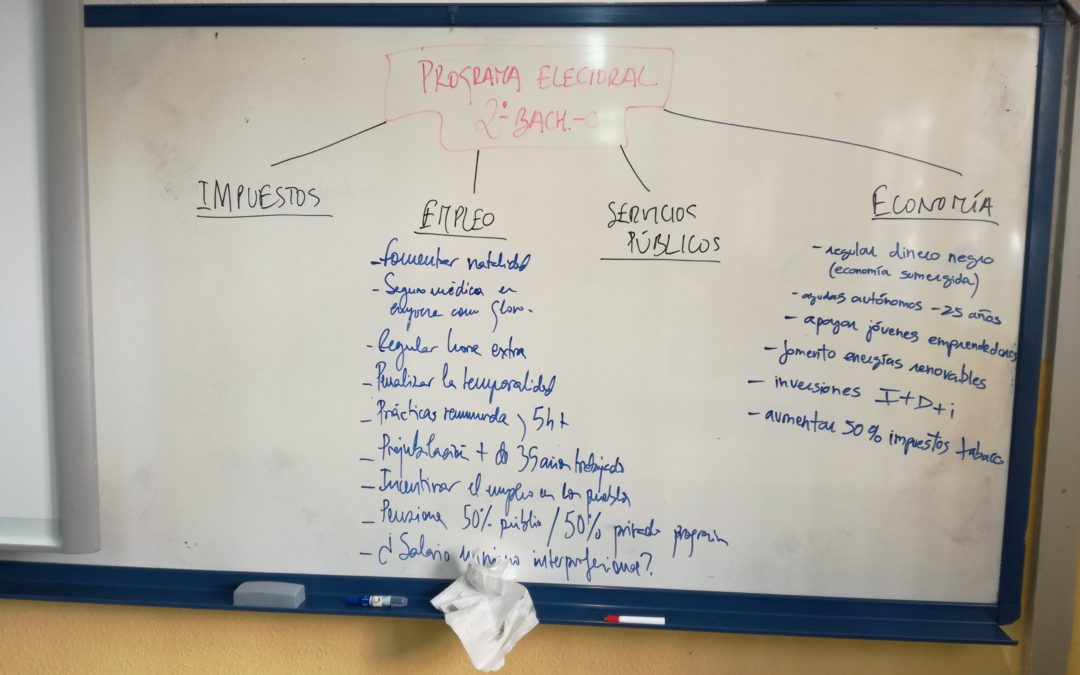 PROGRAMA ELECTORAL
2º BACH.-C
IMPUESTOS
EMPLEO
- fomentar natalidad
- Seguro médico en
- Regular hora extra
- Penalizar la temporalidad
- Prácticas remunerada y 5h+
- Prejubilación + de 35 años trabajado
- Incentivar el empleo en los pueblos
- Pensiones 50% público / 50% privado
- ¿Salario mínimo interprofesional?
SERVICIOS
PÚBLICOS
ECONOMÍA
- regular dinero negro
(economía sumergida)
- ayudas autónomos -25 años
- apoyar jóvenes emprendedores
- fomento energías renovables
- inversiones I+D+i
- aumentar 50% impuestos tabaco